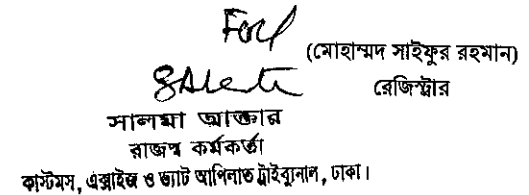 For
(মোহাম্মদ সাইফুর রহমান)
রেজিস্ট্রার
সালমা আক্তার
রাজস্ব কর্মকর্তা
কাস্টমস, এক্সাইজ ও ভ্যাট আপিলাত ট্রাইব্যুনাল, ঢাকা।